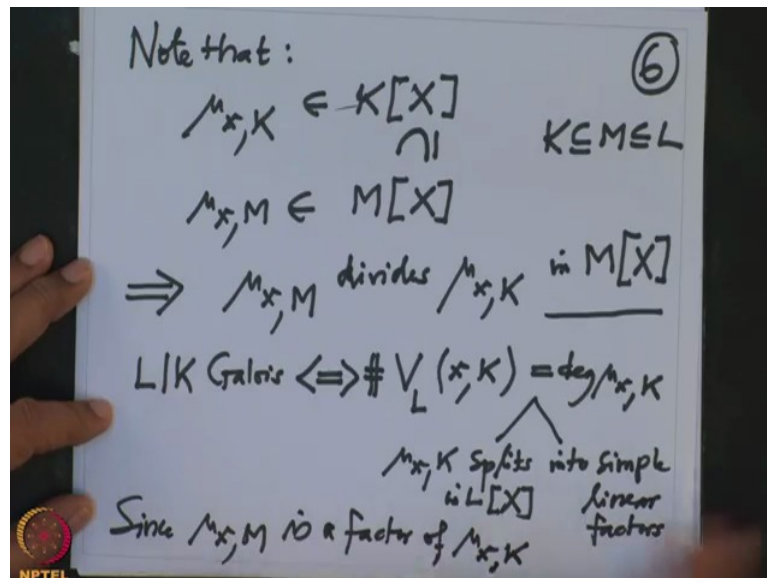 Note that:
⑥
μ_{x,K} ∈ K[X]
∩|
K ⊆ M ⊆ L
μ_{x,M} ∈ M[X]
⟹ μ_{x,M} divides μ_{x,K} in M[X]
L|K Galois <=> # V_L(x,K) = deg μ_{x,K}
μ_{x,K} splits into simple
in L[X] linear
factors
Since μ_{x,M} is a factor of μ_{x,K}
NPTEL